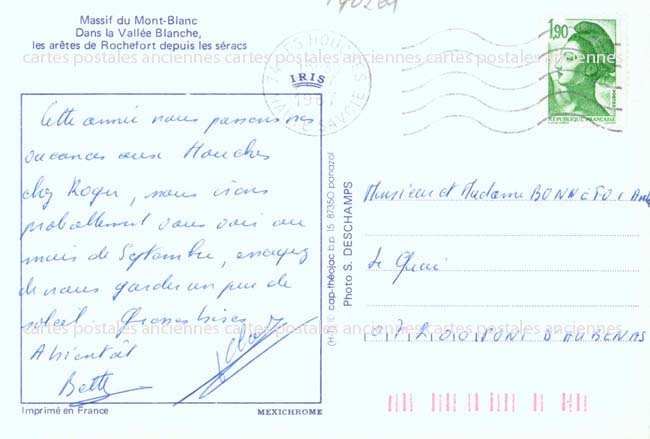 Massif du Mont-Blanc
Dans la Vallée Blanche,
les arêtes de Rochefort depuis les séracs
cartes postales anciennes cartes postales anciennes cartes postales anciennes
74 LES HOUCHES
1987
HAUTE SAVOIE
1,90
REPUBLIQUE FRANÇAISE
IRIS
Cette année nous passons nos
vacances aux Houches
chez Roger, nous irons
probablement vous voir au
mois de Septembre, essayez
de nous garder un peu de
soleil. Grosses bises
A bientôt
Betty
Imprimé en France
MEXICHROME
(H-R) © cap-théojac b.p. 15 87350 panazol
Photo S. DESCHAMPS
Monsieur et Madame
le Quai
07200 PONT D'AUBENAS
cartes postales anciennes cartes postales anciennes cartes postales anciennes